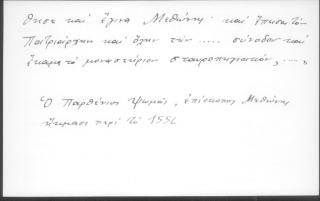 θησε καὶ ἔγινα Μεθώνης· καὶ ἔπεισα τὸν
Πατριάρχην καὶ ὅλην τὴν ..... σύνοδον καὶ
ἔκαμα τὸ μοναστήριον σταυροπηγιακόν, ....»
Ὁ Παρθένιος Ψωμᾶς, ἐπίσκοπος Μεθώνης
ἤκμασε περὶ τὸ